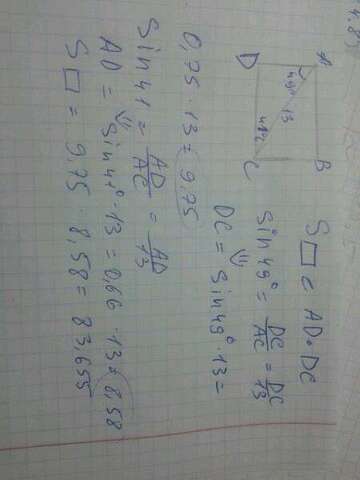 4.8)
D A
49° 13
41°
C B
S□ = AD·DC
Sin 49° = DC/AC = DC/13
DC = Sin 49°·13 =
0,75·13 = 9,75
Sin 41 = AD/AC = AD/13
AD = Sin 41°·13 = 0,66·13 = 8,58
S□ = 9,75·8,58 = 83,655